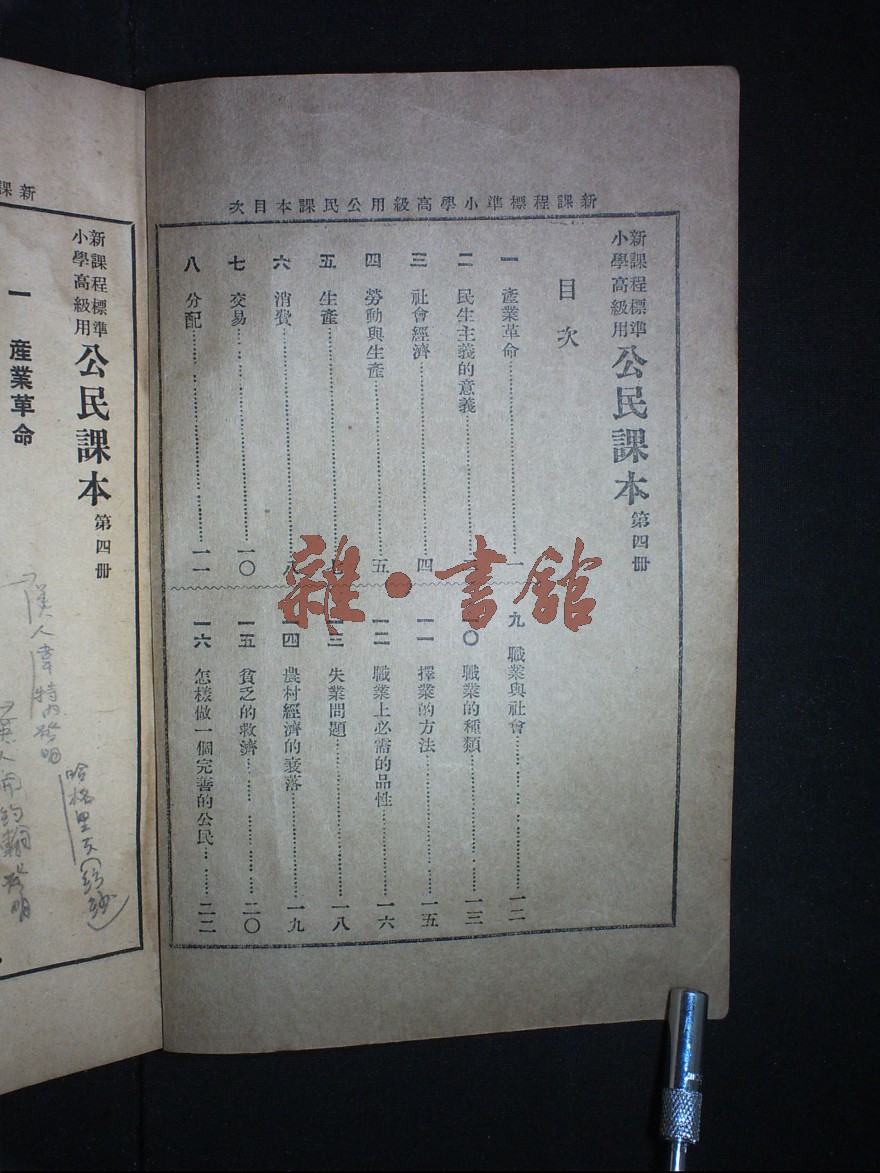 新課程標準小學高級用公民課本目次
新課程標準
小學高級用
公民課本 第四冊
目次
一 產業革命 一
二 民生主義的意義
三 社會經濟 四
四 勞動與生產 五
五 生產 七
六 消費 八
七 交易 一〇
八 分配 一一
九 職業與社會 一二
一〇 職業的種類 一三
一一 擇業的方法 一五
一二 職業上必需的品性 一六
一三 失業問題 一八
一四 農村經濟的衰落 一九
一五 貧乏的救濟 二〇
一六 怎樣做一個完善的公民 二二
雜·書館
新課
新課程標準
小學高級用
公民課本 第四冊
一 產業革命
英人韋特內發明
哈格里夫(紡紗)